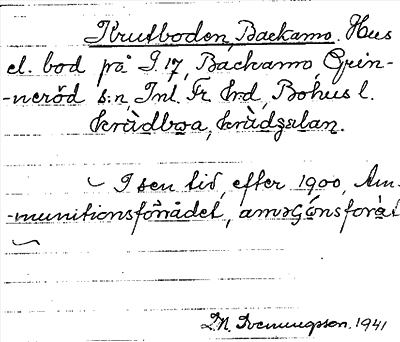 Krutboden, Backamo. Hus
el. bod på I 17, Backamo, Grin-
-neröd s:n, Inl. Fr. hrd, Bohus l.
krùdbωa, krùdʒalan.
~ I sen tid, efter 1900, Am-
-munitionsförrådet, amɷʃónsforåt
~
1941